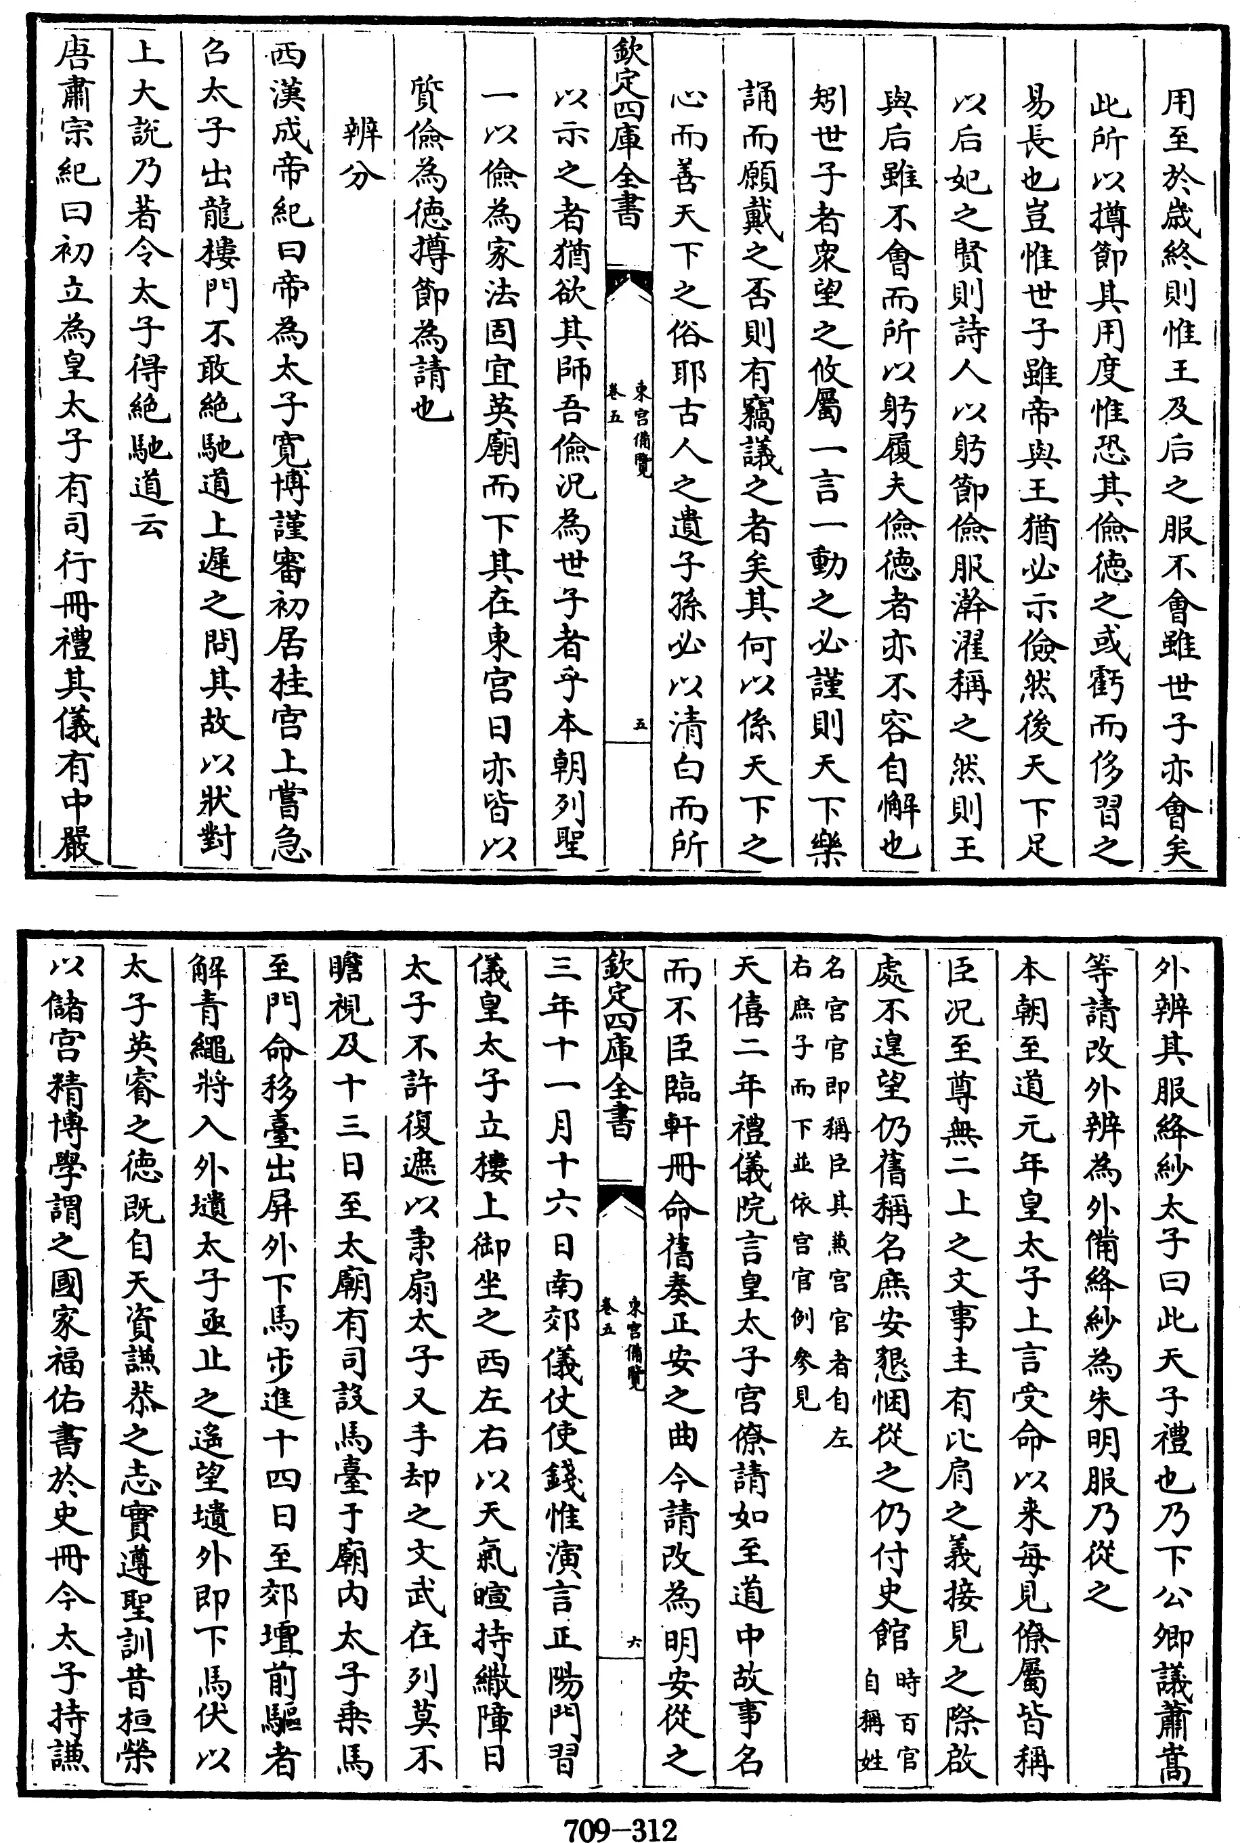 用至於歲終則惟王及后之服不會雖世子亦會矣
此所以撙節其用度惟恐其儉德之或虧而侈習之
易長也豈惟世子雖帝與王猶必示儉然後天下足
以后妃之賢則詩人以躬節儉服澣濯稱之然則王
與后雖不會而所以躬履夫儉德者亦不容自懈也
矧世子者衆望之攸屬一言一動之必謹則天下樂
誦而願戴之否則有竊議之者矣其何以係天下之
心而善天下之俗耶古人之遺子孫必以清白而所
欽定四庫全書
東宮備覽
卷五
五
以示之者猶欲其師吾儉況為世子者乎本朝列聖
一以儉為家法固宜英廟而下其在東宮日亦皆以
質儉為德撙節為請也
辨分
西漢成帝紀曰帝為太子寛博謹審初居桂宮上嘗急
召太子出龍樓門不敢絶馳道上遲之問其故以狀對
上大說乃著令太子得絶馳道云
唐肅宗紀曰初立為皇太子有司行冊禮其儀有中嚴
外辨其服絳紗太子曰此天子禮也乃下公卿議蕭嵩
等請改外辨為外備絳紗為朱明服乃從之
本朝至道元年皇太子上言受命以来每見僚屬皆稱
臣況至尊無二上之文事主有比肩之義接見之際啟
處不遑望仍舊稱名庶安懇悃從之仍付史館時百官自稱姓
名宮官即稱臣其兼宮官者自左
右庶子而下並依宮官例參見
天僖二年禮儀院言皇太子宮僚請如至道中故事名
而不臣臨軒冊命舊奏正安之曲今請改為明安從之
欽定四庫全書
東宮備覽
卷五
六
三年十一月十六日南郊儀仗使錢惟演言正陽門習
儀皇太子立樓上御坐之西左右以天氣暄持繖障日
太子不許復遮以秉扇太子又手却之文武在列莫不
瞻視及十三日至太廟有司設馬臺于廟内太子乗馬
至門命移臺出屏外下馬步進十四日至郊壇前驅者
解青繩將入外壝太子亟止之遙望壝外即下馬伏以
太子英睿之德既自天資謙恭之志實遵聖訓昔桓榮
以儲宮精博學謂之國家福佑書於史冊今太子持謙
709—312